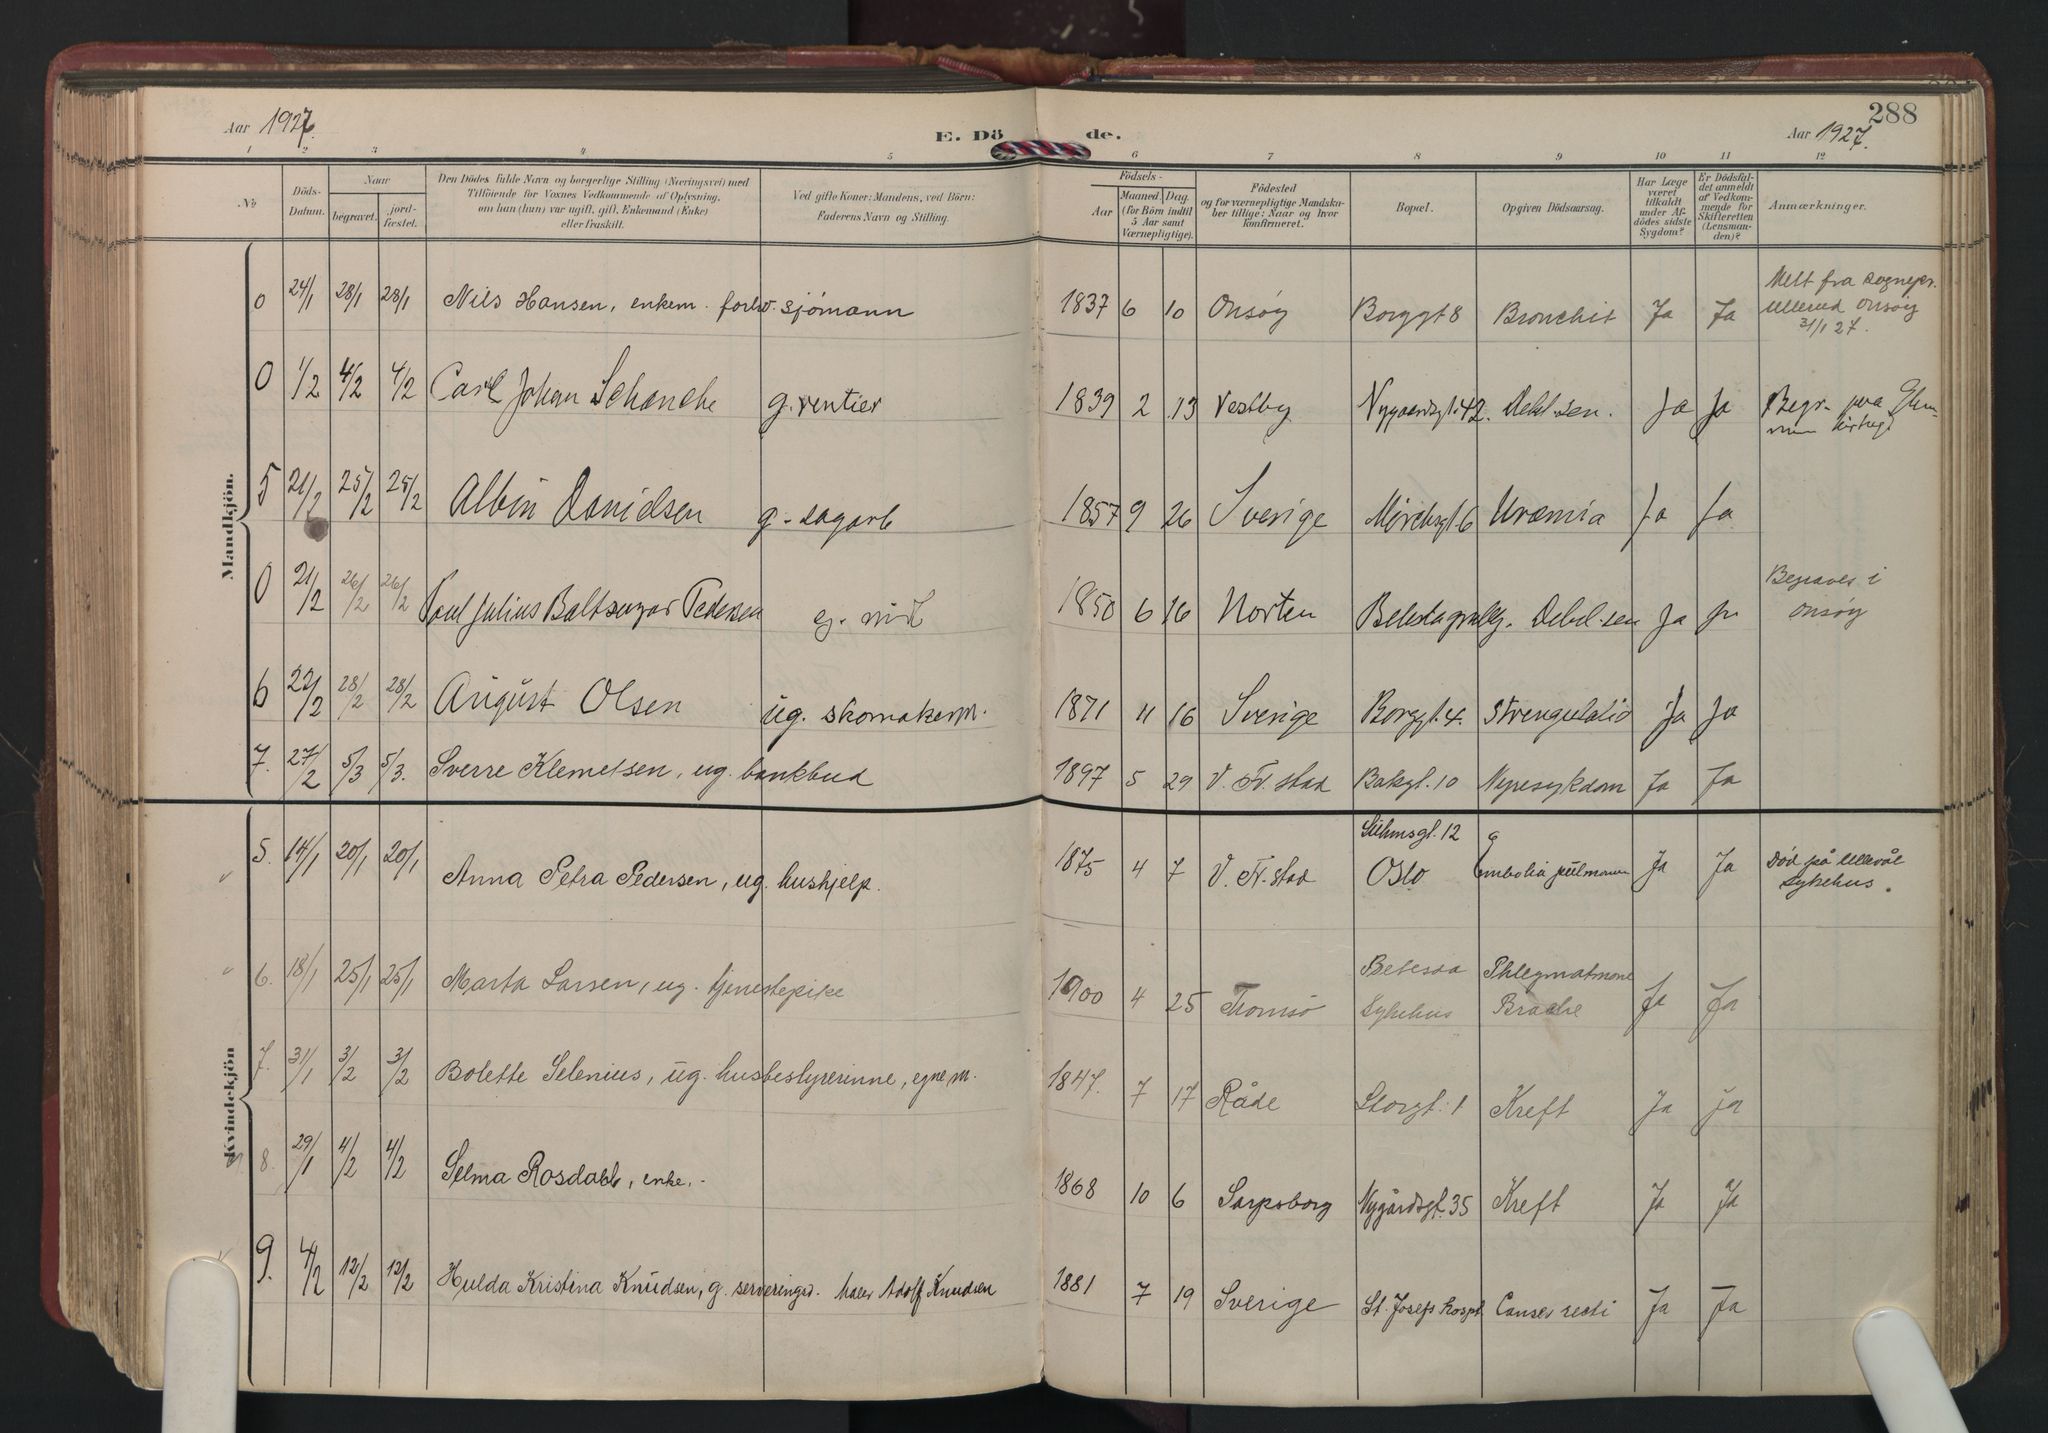 288
Aar 1927. E. Dö de. Aar 1927.
1 2 3 4 5 6 7 8 9 10 11 12
No
Döds-Datum.
Naar
begravet.
jord-fæstet.
Den Dödes fulde Navn og borgerlige Stilling (Næringsvei) med
Tilföiende for Voxnes Vedkommende af Oplysning,
om han (hun) var ugift, gift, Enkemand (Enke)
eller fraskilt.
Ved gifte Koner: Mandens, ved Börn:
Faderens Navn og Stilling.
Födsels-
Aar
Maaned. Dag.
(for Börn indtil
5 Aar samt
Værnepligtige).
Födested
og for værnepligtige Mandsku-
ber tillige: Naar og hvor
konfirmeret.
Bopæl.
Opgiven Dödsaarsag.
Har Læge
været
tilkaldt
under Af-
dödes sidste
Sygdom?
Er Dödsfal-
det anmeldt
af Vedkom-
mende for
Skifteretten
(Lensman-
den)?
Anmærkninger.
Mandkjön.
0 24/1 28/1 28/1 Nils Hansen, enkem. sjömann 1837 6 10 Onsöy Borggt 8 Bronchit Ja Ja Melt fra Sognepr.
Ullerud Onsöy
31/1 27.
0 1/2 4/2 4/2 Carl Johan Schanche g. rentier 1839 2 13 Vestby Nygaardsgt. 42. Debil. sen. Ja Ja Begr. paa Glem-
men
5 21/2 25/2 25/2 Albin Danielsen g. sagarb 1857 9 26 Sverige 6 Uræmia Ja Ja
0 21/2 26/2 26/2 Paul Julius Baltsazar Pedersen 1850 6 16 Horten Debil. sen Ja Ja Begraves i
Onsöy
6 22/2 28/2 28/2 August Olsen ug. skomakerm. 1871 4 16 Sverige Borggt. 4. Strengulatio Ja Ja
7. 27/2 5/3 5/3. Sverre Klemetsen, ug. bankbud 1897 5 29 V. Fr. stad Bakgt. 10 Nyresykdom Ja Ja
Kvindekjön
5. 14/1 20/1 20/1 Anna Petra Pedersen, ug. hushjelp. 1875 4 7 V. Fr. stad Suhmsgt. 12
Oslo Embolia pulmonum Ja Ja Död på Ullevål
sykehus.
6. 18/1 25/1 25/1 Marta Larsen, ug. tjenestepike 1900 4 25 Tromsö Betesda
Sykehus Phlegmatmone
Ja Ja
7. 31/1 3/2 3/2 Bolette Selenius, ug. husbestyrerinne, egne m. 1847. 7 17 Råde Storgt. 1 Kreft Ja Ja
8. 29/1 4/2 4/2 Selma Rosdahl, enke. 1868 10 6 Sarpsborg Nygårdsgt. 35 Kreft Ja Ja
9. 4/2 12/2 12/2 Hulda Kristina Knudsen, g. serveringsd. Maler Adolf Knudsen 1881 7 19 Sverige St. Josefs hospt Canser recti Ja Ja